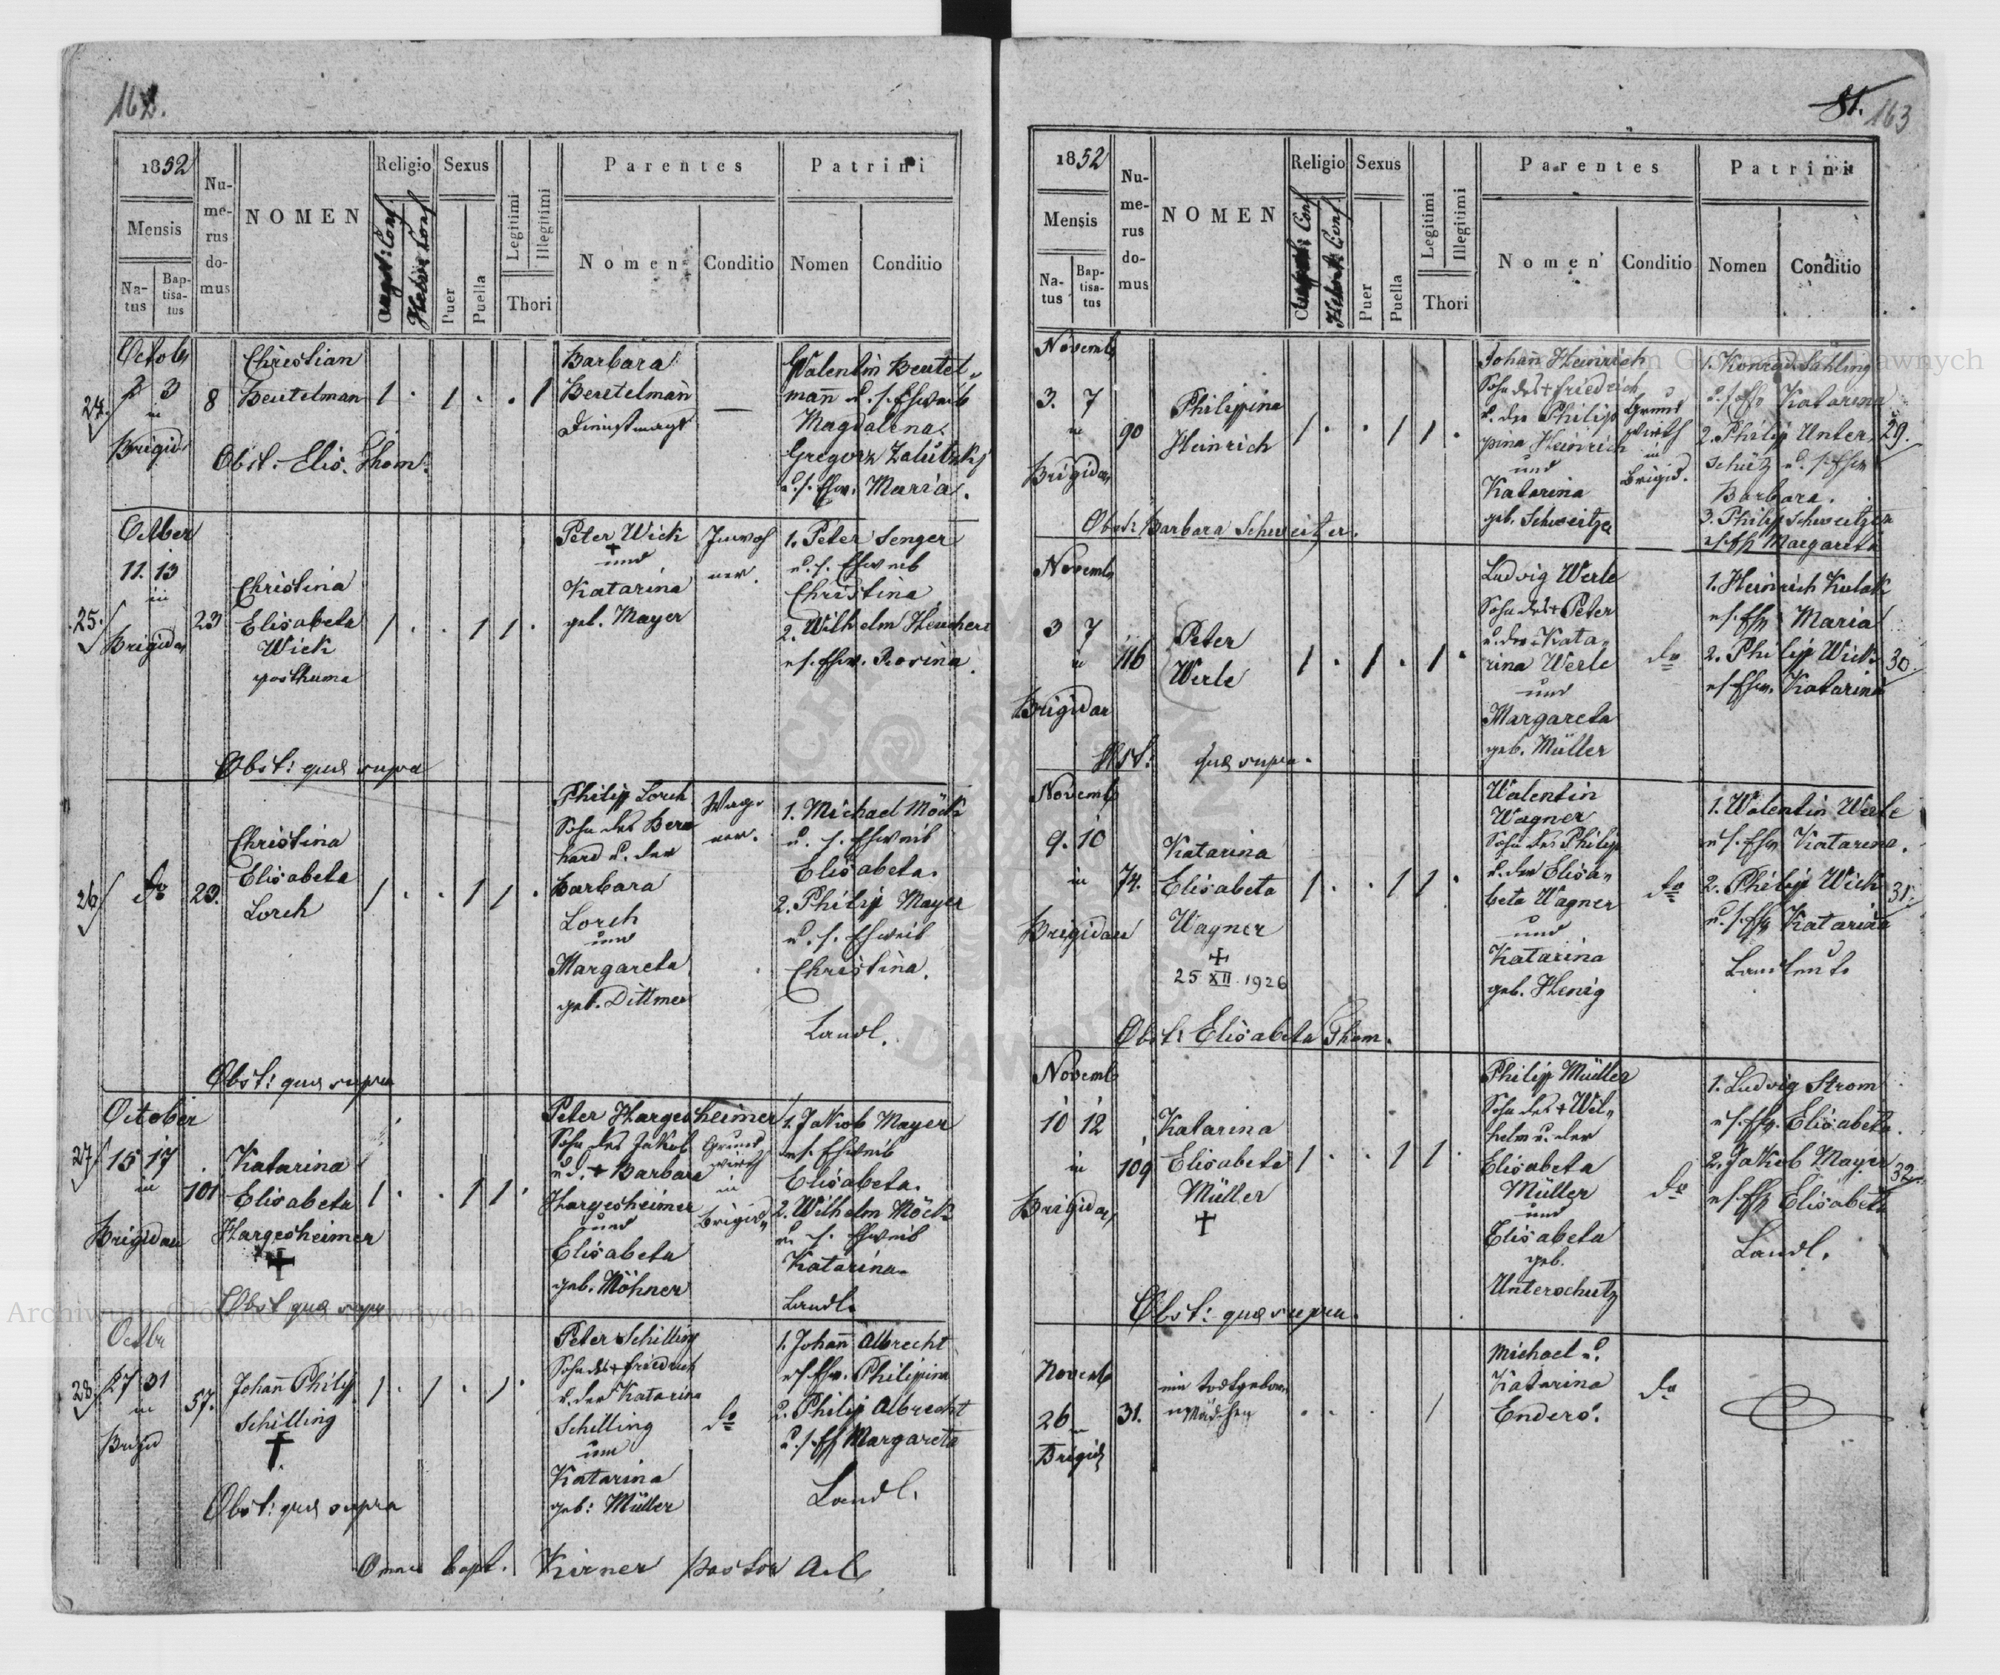 162.
1852
Mensis
Na-
tus
Bap-
tisa-
tus
Nu-
me-
rus
do-
mus
NOMEN
Religio
August: Conf
Helvet: Conf
Sexus
Puer
Puella
Legitimi
Illegitimi
Thori
Parentes
Nomen
Conditio
Patrini
Nomen
Conditio
24.
Octob
2 3
in
Brigid
8
Christian
Beutelman
1 . 1 . . 1
Barbara
Beutelman
Dienstmagd
—
Valentin Beutel-
mañ u. s. Ehweib
Magdalena.
Gregorz Zalutzkj
u. s. Ehw. Maria.
Obst. Elis. Thom.
25.
October
11. 13
in
Brigidau
23
Christina
Elisabeta
Wick
posthuma
1 . . 1 1 .
Peter Wick
+
und
Katarina
geb. Mayer
Inwoh
ner.
1. Peter Senger
u. s. Ehweib
Christina
2. Wilhelm Heuchert
u s. Ehw. Rosina.
Obst: quæ supra
26
do
23.
Christina
Elisabeta
Lorch
1 . . 1 1 .
Philipp Lorch
Sohn des Bern
hard u. der
Barbara
Lorch
und
Margareta
geb. Dittmer
Wag-
ner.
1. Michael Möck
u. s. Ehweib
Elisabeta.
2. Philip Mayer
u. s. Ehweib
Christina.
Landl.
Obst: quæ supra
27
October
15 17
in
Brigidau
101
Katarina
Elisabeta
Hargesheimer
+
1 . . 1 1 .
Peter Hargesheimer
Sohn des Jakob
u. d. + Barbara
Hargesheimer
und
Elisabeta
geb. Möhner
Grund
wirth
in
Brigid
1. Jakob Mayer
u. s. Ehweib
Elisabeta.
2. Wilhelm Möck
u. s. Ehweib
Katarina.
Landl.
Obst quæ supra
28
Octbr
27 31
in
Brigid
57.
Johañ Philip
Schilling
+
1 . 1 . 1 .
Peter Schilling
Sohn des + Friedrich
u. der Katarina
Schilling
und
Katarina
geb: Müller
do
1. Johañ Albrecht
u s Ehw. Philipina
2. Philip Albrecht
u. s. Eh Margareta
Landl.
Obst: quæ supra
Omnes bapt. Kirner Pastor A.C.
81. 163
1852
Mensis
Na-
tus
Bap-
tisa-
tus
Nu-
me-
rus
do-
mus
NOMEN
Religio
August: Conf
Helvet: Conf.
Sexus
Puer
Puella
Legitimi
Illegitimi
Thori
Parentes
Nomen
Conditio
Patrini
Nomen
Conditio
Novemb
3. 7
in
Brigidau
90
Philippina
Heinrich
1 . . 1 1 .
Johañ Heinrich
Sohn des + Friedrich
u. der Philip
pina Heinrich
und
Katarina
geb. Schweitzer
Grund
wirth
in
Brigid.
1. Konrad Sahling
Katarina
2. Philip Unter
schütz u. s. Ehw
Barbara.
3. Philip Schweitzer
u s Eh Margareta
29.
Obst: Barbara Schweitzer.
Novemb
3 7
in
Brigidau
116
Peter
Werle
1 . 1 . 1 .
Ludvig Werle
Sohn des + Peter
u. der Kata-
rina Werle
und
Margareta
geb. Müller
do
1. Heinrich Kulak
u s. Ehw Maria
2. Philip Wick
u s Ehw. Katarina
30
Obst: quæ supra.
Novemb
9. 10
in
Brigidau
74.
Katarina
Elisabeta
Wagner
+
25 XII 1926
1 . . 1 1 .
Walentin
Wagner
Sohn des Philip
u. der Elisa-
beta Wagner
und
Katarina
geb. Henig
do
1. Walentin Werle
u s. Ehw Katarina.
2. Philip Wick
u. s. Eh Katarina
Landleute
31.
Obst: Elisabeta Thom.
Novemb
10 12
in
Brigidau
109
Katarina
Elisabeta
Müller
+
1 . . 1 1 .
Philip Müller
Sohn des + Wil-
helm u. der
Elisabeta
Müller
und
Elisabeta
geb.
Unterschutz
do
1. Ludvig Strom
u s. Eh. Elisabeta.
2. Jakob Mayer
u s. Eh Elisabeta
Landl.
32.
Obst: quæ supra.
Novemb
26
Brigid
31.
ein todtgebore
nes Mädchen
. . . 1
Michael u.
Katarina
Enders.
do
Archiwum Główne Akt Dawnych